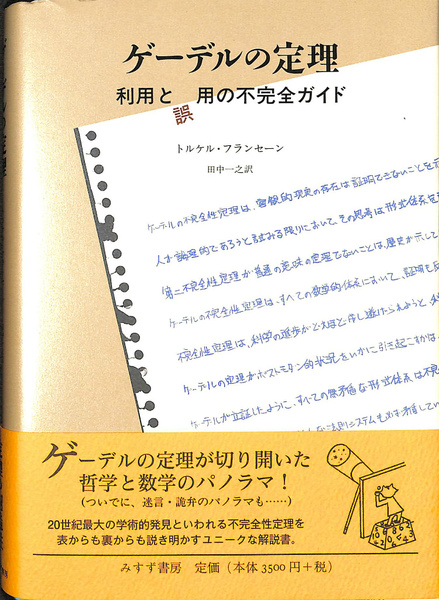 ゲーデルの定理
利用と 用の不完全ガイド
誤
トルケル・フランセーン
田中一之訳
ゲーデルの不完全性定理は、客観的現実の存在は証明できないことを
人が論理的であろうと試みる限りにおいて、その思考は形式体系を
第二不完全性定理が普通の意味の定理でないことは、歴史が示して
ゲーデルの不完全性定理は、すべての数学的体系において、証明も
不完全性定理は、科学の進歩がどれほど押し進められようと、
ゲーデルの定理がポストモダン的状況をいかに引き起こすかは
ゲーデルが立証したように、すべての無矛盾な形式体系は不完
ゲーデルの定理が切り開いた
哲学と数学のパノラマ！
(ついでに、迷言・詭弁のパノラマも……)
20世紀最大の学術的発見といわれる不完全性定理を
表からも裏からも説き明かすユニークな解説書。
みすず書房 定価（本体3500円＋税）